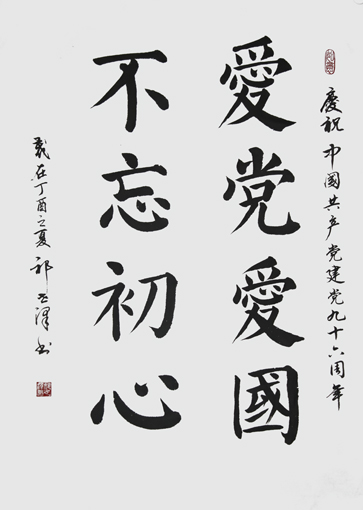 慶祝中国共产党建党九十六周年
愛党愛國
不忘初心
歲在丁酉之夏祁澤书